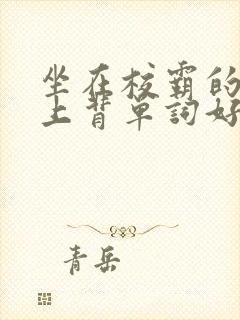 坐在校霸的
上背单詞好
青岳